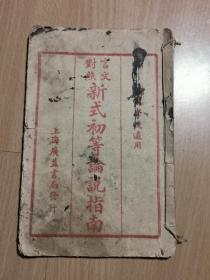 適用
言文
對照
新式初等論說指南
上海廣益書局發行